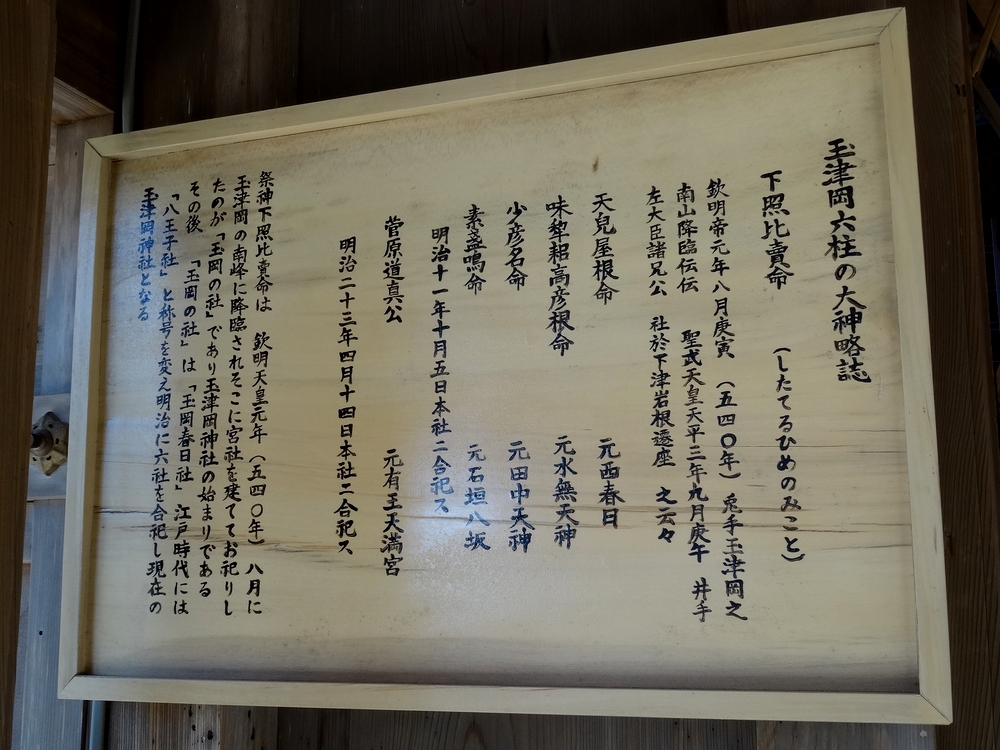 玉津岡六柱の大神略誌
下照比賣命 (したてるひめのみこと)
欽明帝元年八月庚寅 (五四〇年) 兎手玉津岡之
南山降臨伝伝 聖武天皇天平三年九月庚午 井手
左大臣諸兄公 社於下津岩根遷座 之云々
天兒屋根命 元西春日
味耜高彦根命 元水無天神
少彦名命 元田中天神
素盞鳴命 元石垣八坂
明治十一年十月五日本社ニ合祀ス
菅原道真公 元有王天満宮
明治二十三年四月十四日本社ニ合祀ス
祭神下照比賣命は 欽明天皇元年 (五四〇年) 八月に
玉津岡の南峰に降臨されそこに宮社を建ててお祀りし
たのが「玉岡の社」であり玉津岡神社の始まりである
その後 「玉岡の社」は「玉岡春日社」江戸時代には
「八王子社」と称号を変え明治に六社を合祀し現在の
玉津岡神社となる